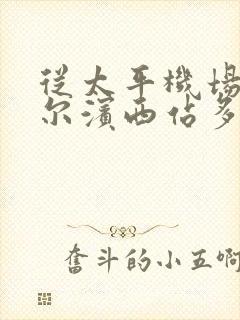 從太平機場
尔濱西佔多
奮斗的小五啊